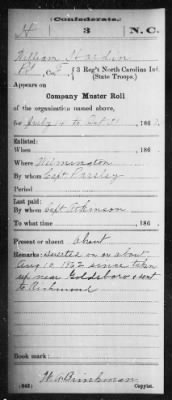 Confederate.
H 3 N.C.
William Hardin
Pvt, Co. F, 3 Reg't North Carolina Inf.
(State Troops.)
Appears on
Company Muster Roll
of the organization named above,
to Oct 31, 186
Enlisted:
When , 186 .
Where Wilmington
By whom Capt Parsley
Period
Last paid:
By whom Capt Atkinson
To what time , 186 .
Present or absent Absent
Remarks: Deserted on or about
Aug 10, 1862 since taken
up near Goldsboro & sent
to Richmond
Book mark:
W. W. Brinkman
(642) Copyist.